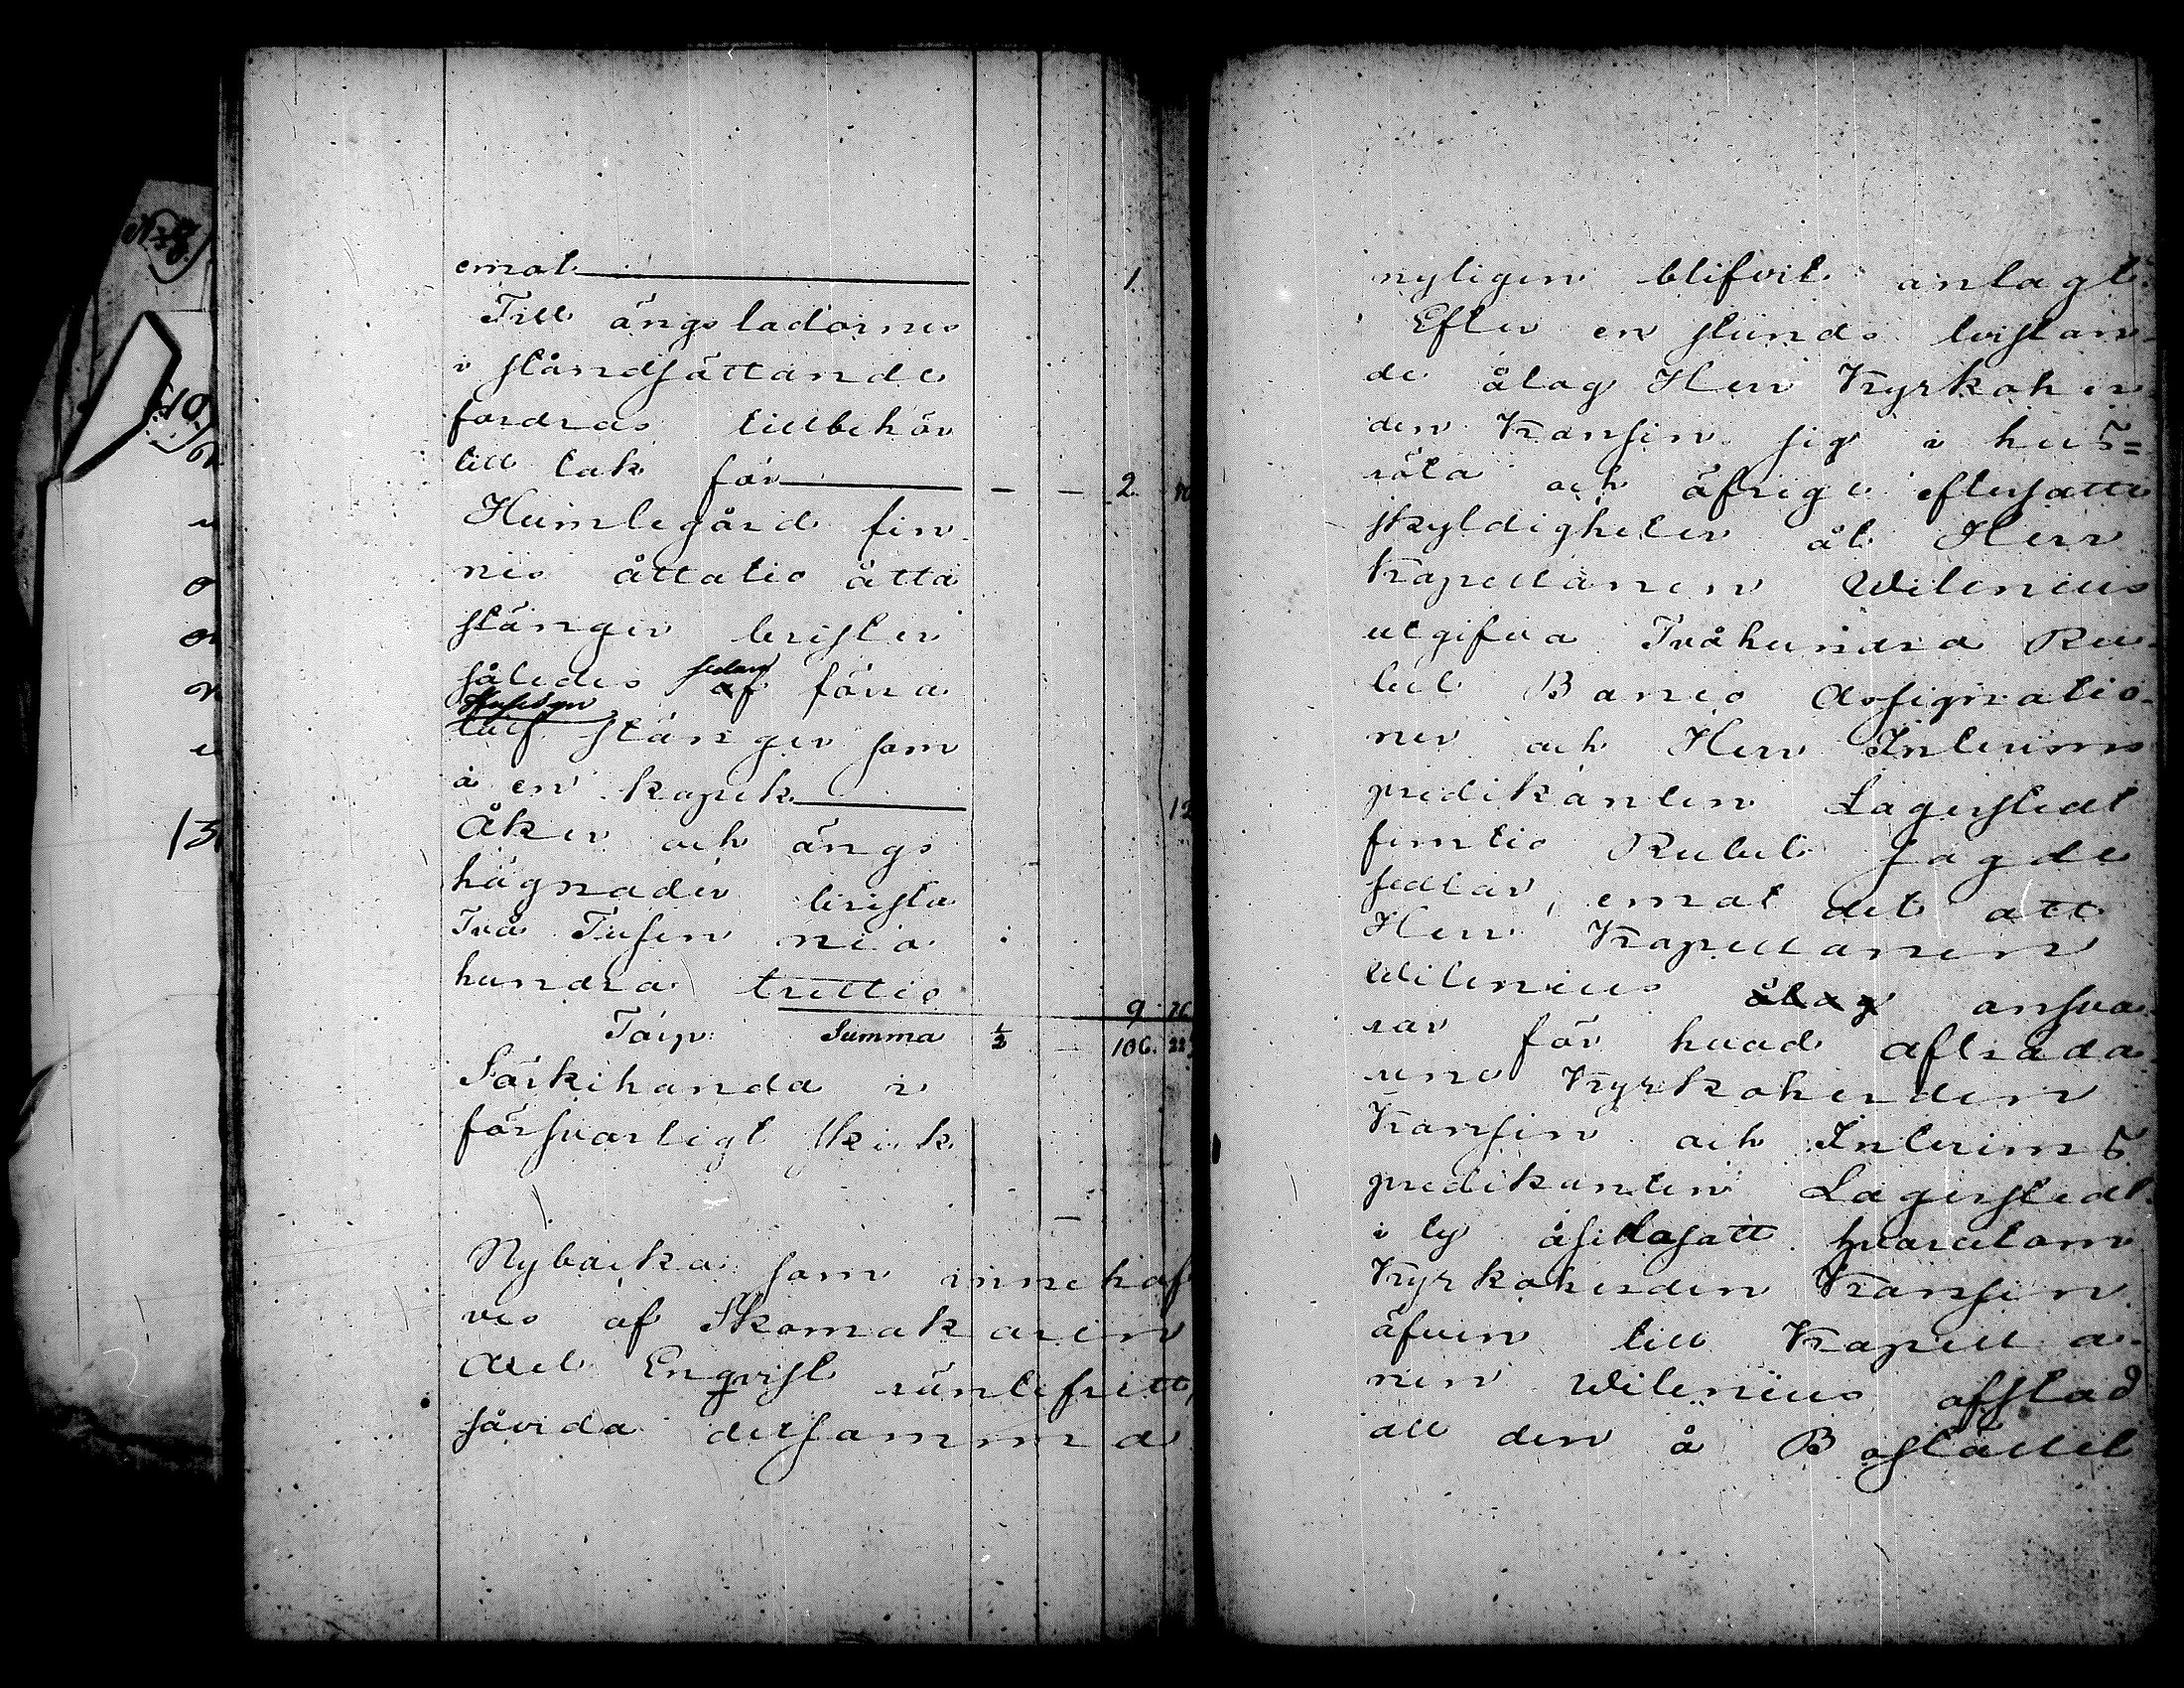 emot 1.
Till ängsladornes
i ståndsättande
fordras tillbehör
till tak för — — 2. 50
Humlegård fin-
nes åttatio åtta
stänger brister
således sedan af förra
Husesyn tolf stänger som
à en kopek 12
Åker och ängs
hägnader brista
Två Tusen nio
hundra trettio 9. 76
Torp. Summa ½ — 106. 22
Särkihanda i
försvarligt skick
—
Nybacka som innehaf
ves af Skomakaren
Axel Engqvist räntefritt,
såvida detsamma
nyligen blifvit anlagt.
Efter en stunds tvistan-
de ålag Herr Kyrkoher
den Kransén sig i hus=
röta och öfrige eftersatte
skyldigheter åt Herr
Kapellanen Wilenius
utgifva Tvåhundra Ru-
bel Banco Assignatio-
ner och Herr Interims
predikanten Lagerstedt
femtio Rubel sagde
sedlar, emot det att
Herr Kapellanen
Wilenius ålog ansva-
rar för hvad afträda-
rene Kyrkoherden
Kransén och Interims
predikanten Lagerstedt
i ty åsidosatt hvarutom
Kyrkoherden Kransén
äfven till Kapella-
nen Wilenius afstad
all den å Bostället